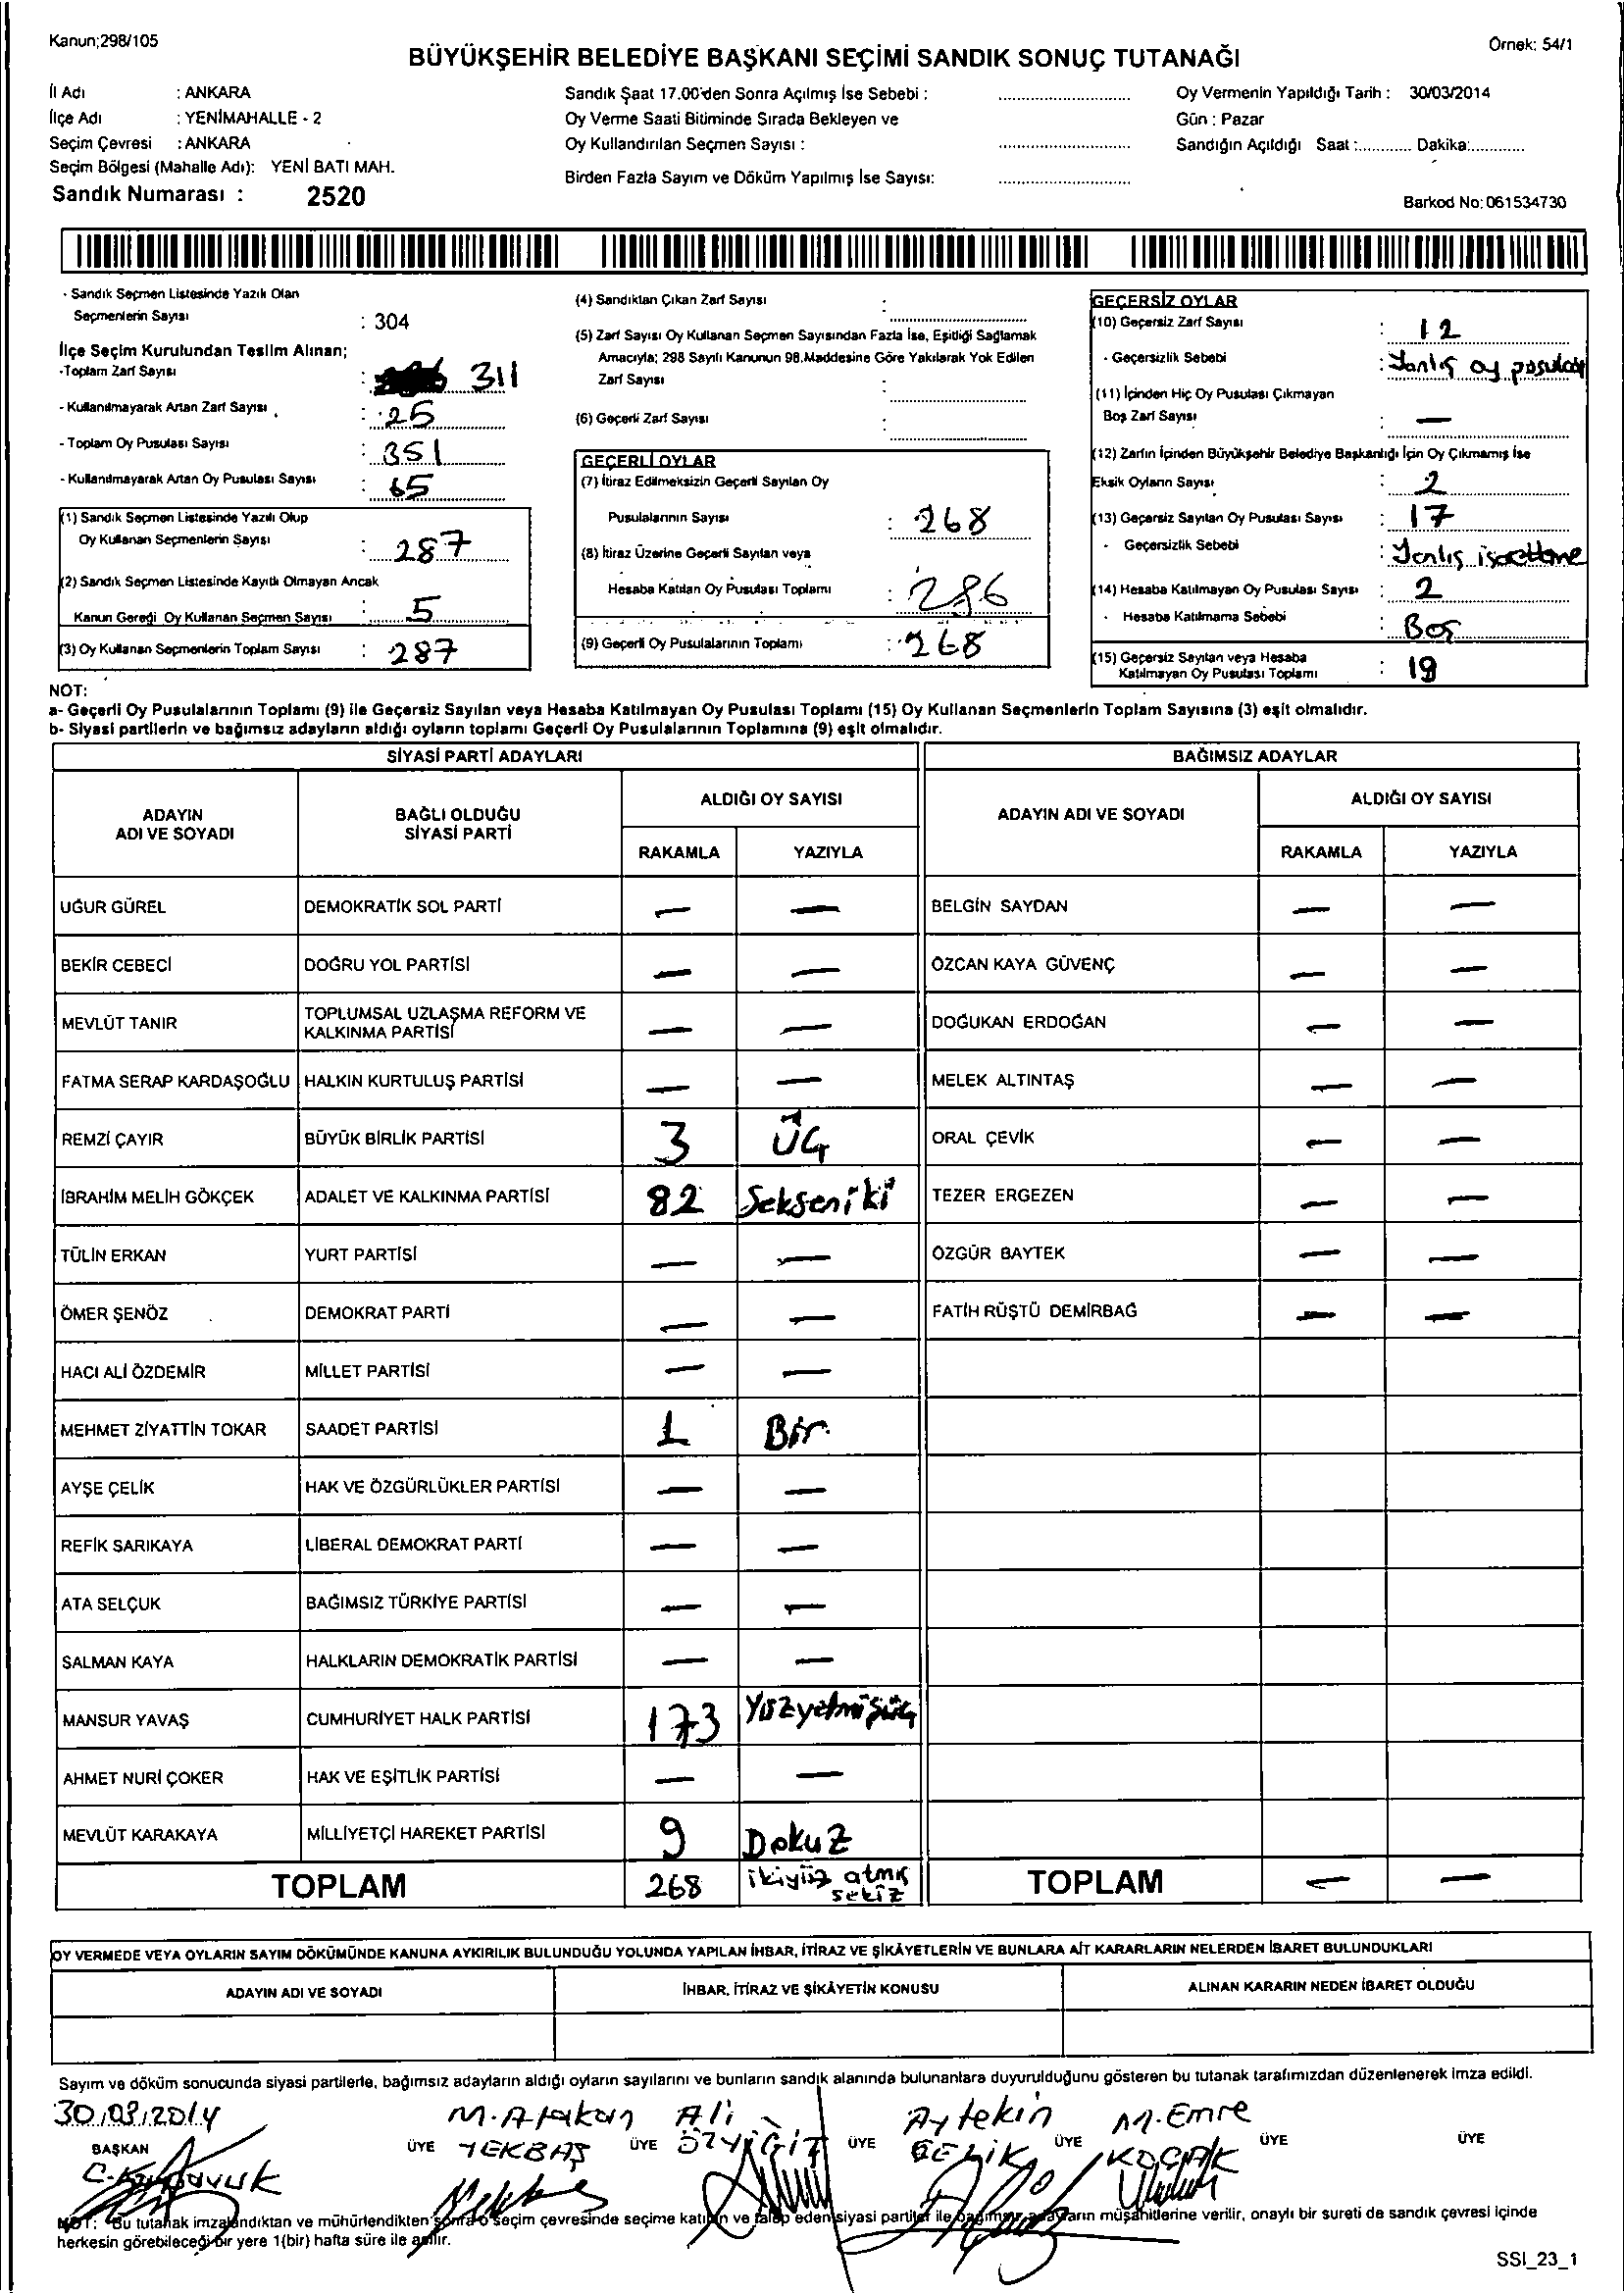 Kanun;298/105
Örnek: 54/1
BÜYÜKŞEHİR BELEDİYE BAŞKANI SEÇİMİ SANDIK SONUÇ TUTANAĞI
İl Adı : ANKARA
İlçe Adı : YENİMAHALLE - 2
Seçim Çevresi : ANKARA
Seçim Bölgesi (Mahalle Adı): YENİ BATI MAH.
Sandık Numarası : 2520
Sandık Saat 17.00'den Sonra Açılmış İse Sebebi :
Oy Verme Saati Bitiminde Sırada Bekleyen ve
Oy Kullandırılan Seçmen Sayısı :
Birden Fazla Sayım ve Döküm Yapılmış İse Sayısı:
Oy Vermenin Yapıldığı Tarih : 30/03/2014
Gün : Pazar
Sandığın Açıldığı Saat :............ Dakika:............
Barkod No: 061534730
- Sandık Seçmen Listesinde Yazılı Olan
Seçmenlerin Sayısı : 304
İlçe Seçim Kurulundan Teslim Alınan;
-Toplam Zarf Sayısı : 311
- Kullanılmayarak Artan Zarf Sayısı : 25
- Toplam Oy Pusulası Sayısı : 351
- Kullanılmayarak Artan Oy Pusulası Sayısı : 65
(1) Sandık Seçmen Listesinde Yazılı Olup
Oy Kullanan Seçmenlerin Sayısı : 287
(2) Sandık Seçmen Listesinde Kayıtlı Olmayan Ancak
Kanun Gereği Oy Kullanan Seçmen Sayısı : 5
(3) Oy Kullanan Seçmenlerin Toplam Sayısı : 287
(4) Sandıktan Çıkan Zarf Sayısı :
(5) Zarf Sayısı Oy Kullanan Seçmen Sayısından Fazla İse, Eşitliği Sağlamak
Amacıyla; 298 Sayılı Kanunun 98.Maddesine Göre Yakılarak Yok Edilen
Zarf Sayısı :
(6) Geçerli Zarf Sayısı :
GEÇERLİ OYLAR
(7) İtiraz Edilmeksizin Geçerli Sayılan Oy
Pusulalarının Sayısı : 268
(8) İtiraz Üzerine Geçerli Sayılan veya
Hesaba Katılan Oy Pusulası Toplamı : 286
(9) Geçerli Oy Pusulalarının Toplamı : 268
GEÇERSİZ OYLAR
(10) Geçersiz Zarf Sayısı : 12
- Geçersizlik Sebebi : Yanlış oy pusulası
(11) İçinden Hiç Oy Pusulası Çıkmayan
Boş Zarf Sayısı : —
(12) Zarfın İçinden Büyükşehir Belediye Başkanlığı İçin Oy Çıkmamış İse
Eksik Oyların Sayısı : 2
(13) Geçersiz Sayılan Oy Pusulası Sayısı : 17
- Geçersizlik Sebebi : Yanlış işaretleme
(14) Hesaba Katılmayan Oy Pusulası Sayısı : 2
- Hesaba Katılmama Sebebi : Boş
(15) Geçersiz Sayılan veya Hesaba
Katılmayan Oy Pusulası Toplamı : 19
NOT:
a- Geçerli Oy Pusulalarının Toplamı (9) ile Geçersiz Sayılan veya Hesaba Katılmayan Oy Pusulası Toplamı (15) Oy Kullanan Seçmenlerin Toplam Sayısına (3) eşit olmalıdır.
b- Siyasi partilerin ve bağımsız adayların aldığı oyların toplamı Geçerli Oy Pusulalarının Toplamına (9) eşit olmalıdır.
SİYASİ PARTİ ADAYLARI BAĞIMSIZ ADAYLAR
ADAYIN ADI VE SOYADI BAĞLI OLDUĞU SİYASİ PARTİ ALDIĞI OY SAYISI ADAYIN ADI VE SOYADI ALDIĞI OY SAYISI
RAKAMLA YAZIYLA RAKAMLA YAZIYLA
UĞUR GÜREL DEMOKRATİK SOL PARTİ — — BELGİN SAYDAN — —
BEKİR CEBECİ DOĞRU YOL PARTİSİ — — ÖZCAN KAYA GÜVENÇ — —
MEVLÜT TANIR TOPLUMSAL UZLAŞMA REFORM VE KALKINMA PARTİSİ — — DOĞUKAN ERDOĞAN — —
FATMA SERAP KARDAŞOĞLU HALKIN KURTULUŞ PARTİSİ — — MELEK ALTINTAŞ — —
REMZİ ÇAYIR BÜYÜK BİRLİK PARTİSİ 3 ÜÇ ORAL ÇEVİK — —
İBRAHİM MELİH GÖKÇEK ADALET VE KALKINMA PARTİSİ 82 Sekseniki TEZER ERGEZEN — —
TÜLİN ERKAN YURT PARTİSİ — — ÖZGÜR BAYTEK — —
ÖMER ŞENÖZ DEMOKRAT PARTİ — — FATİH RÜŞTÜ DEMİRBAĞ — —
HACI ALİ ÖZDEMİR MİLLET PARTİSİ — —
MEHMET ZİYATTİN TOKAR SAADET PARTİSİ 1 Bir
AYŞE ÇELİK HAK VE ÖZGÜRLÜKLER PARTİSİ — —
REFİK SARIKAYA LİBERAL DEMOKRAT PARTİ — —
ATA SELÇUK BAĞIMSIZ TÜRKİYE PARTİSİ — —
SALMAN KAYA HALKLARIN DEMOKRATİK PARTİSİ — —
MANSUR YAVAŞ CUMHURİYET HALK PARTİSİ 173 Yüzyetmişüç
AHMET NURİ ÇOKER HAK VE EŞİTLİK PARTİSİ — —
MEVLÜT KARAKAYA MİLLİYETÇİ HAREKET PARTİSİ 9 Dokuz
TOPLAM 268 ikiyüz atmış sekiz TOPLAM — —
OY VERMEDE VEYA OYLARIN SAYIM DÖKÜMÜNDE KANUNA AYKIRILIK BULUNDUĞU YOLUNDA YAPILAN İHBAR, İTİRAZ VE ŞİKÂYETLERİN VE BUNLARA AİT KARARLARIN NELERDEN İBARET BULUNDUKLARI
ADAYIN ADI VE SOYADI İHBAR, İTİRAZ VE ŞİKÂYETİN KONUSU ALINAN KARARIN NEDEN İBARET OLDUĞU
Sayım ve döküm sonucunda siyasi partilerle, bağımsız adayların aldığı oyların sayılarını ve bunların sandık alanında bulunanlara duyurulduğunu gösteren bu tutanak tarafımızdan düzenlenerek imza edildi.
30.03.2014 M. Atakan Ali Aytekin M. Emre
BAŞKAN ÜYE TEKBAŞ ÜYE ÖZYİĞİT ÜYE ÇELİK ÜYE KOÇAK ÜYE ÜYE
NOT: Bu tutanak imzalandıktan ve mühürlendikten sonra o seçim çevresinde seçime katılan ve talep eden siyasi partiler ile bağımsız adayların müşahitlerine verilir, onaylı bir sureti de sandık çevresi içinde
herkesin görebileceği bir yere 1(bir) hafta süre ile asılır.
SSI_23_1